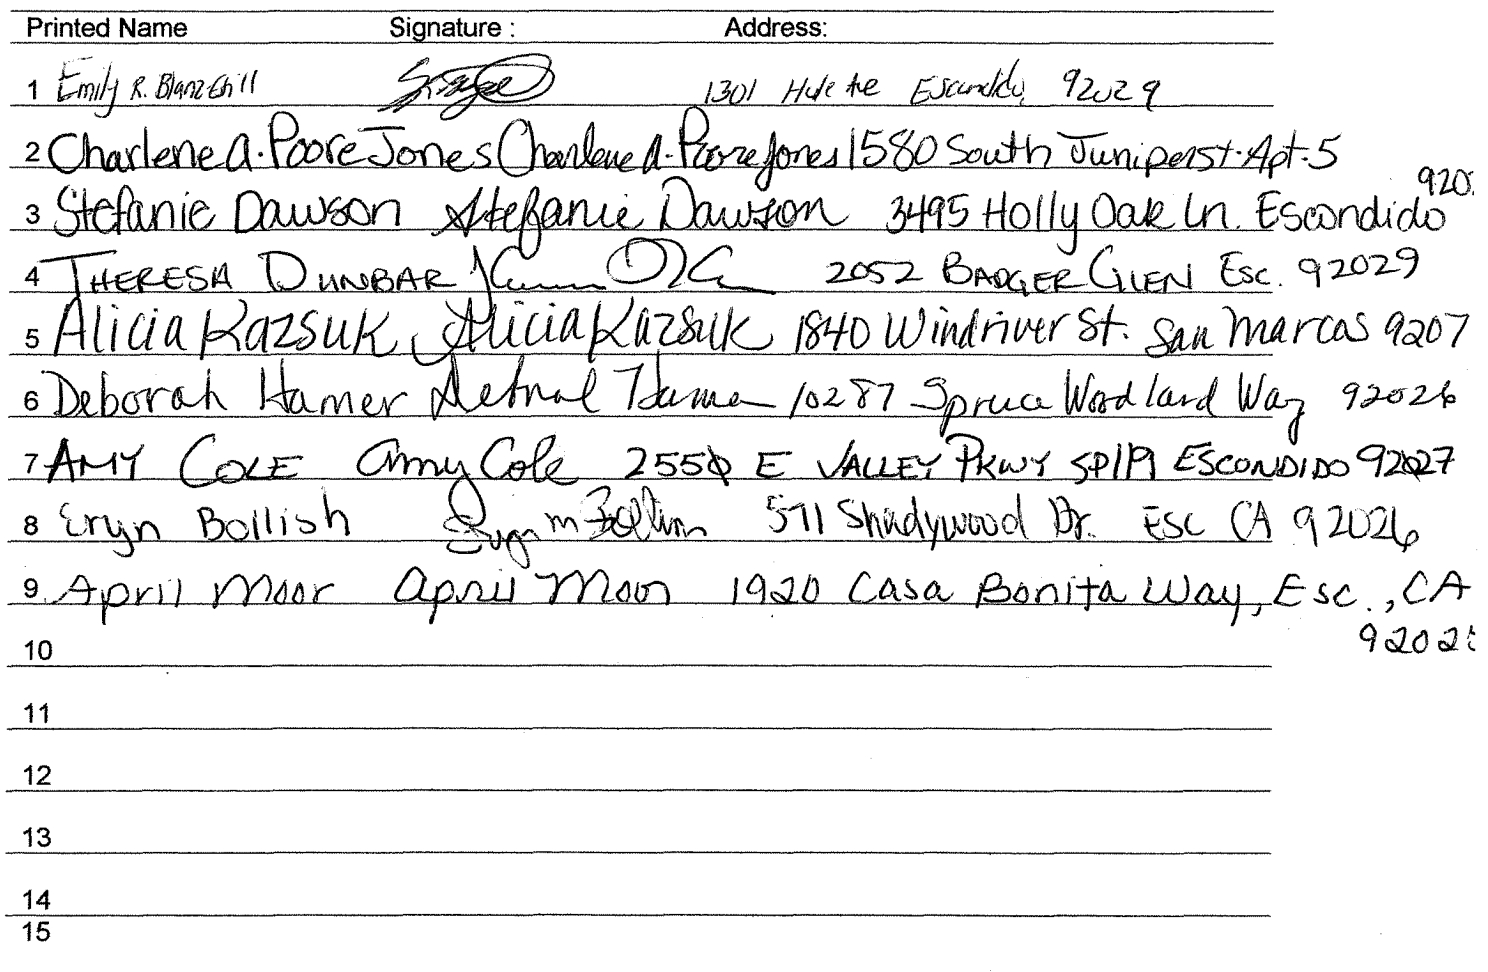 Printed Name Signature : Address:
1 Emily R. 1301 92029
2 Charlene A. Poore Jones Charlene A. Poore Jones 1580 South Juniper st. Apt. 5
920
3 Stefanie Dawson Stefanie Dawson 3495 Holly Oak Ln. Escondido
4 THERESA DUNBAR 2052 BADGER GLEN ESC. 92029
5 Alicia Kazsuk Alicia Kazsuk 1840 Windriver St. San Marcos 9207
6 Deborah Hamer Deborah Hamer 10287 Spruce Woodland Way 92026
7 AMY COLE Amy Cole 2550 E VALLEY PKWY SP119 ESCONDIDO 92027
8 Eryn Bollish 571 Shadywood Dr. ESC CA 92026
9 April Moor April Moor 1920 Casa Bonita Way, Esc., CA
9202
10
11
12
13
14
15